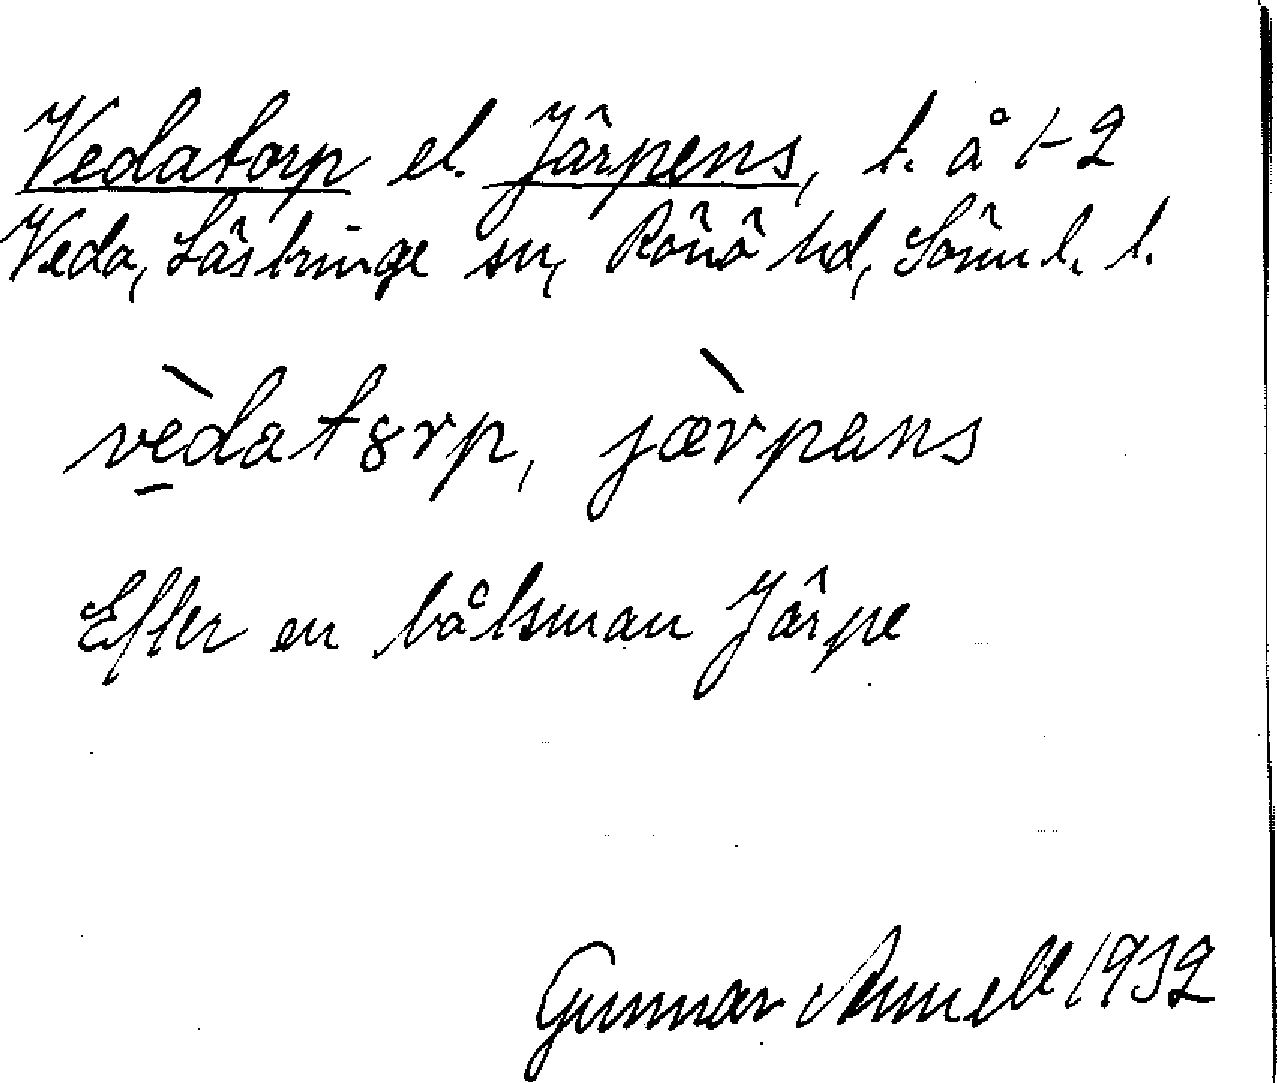 Vedatorp el. Järpens, t. å 1-2
Veda, Lästringe sn, Rönö hd, Söderml. l.
vèdatɤrp, jæ̀rpens
Efter en båtsman Järpe
Gunnar Annell 1932